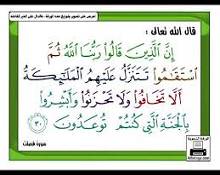 قال الله تعالى :
إِنَّ ٱلَّذِينَ قَالُوا۟ رَبُّنَا ٱللَّهُ ثُمَّ
ٱسْتَقَٰمُوا۟ تَتَنَزَّلُ عَلَيْهِمُ ٱلْمَلَٰٓئِكَةُ
أَلَّا تَخَافُوا۟ وَلَا تَحْزَنُوا۟ وَأَبْشِرُوا۟
بِٱلْجَنَّةِ ٱلَّتِى كُنتُمْ تُوعَدُونَ ٣٠
سورة فصلت